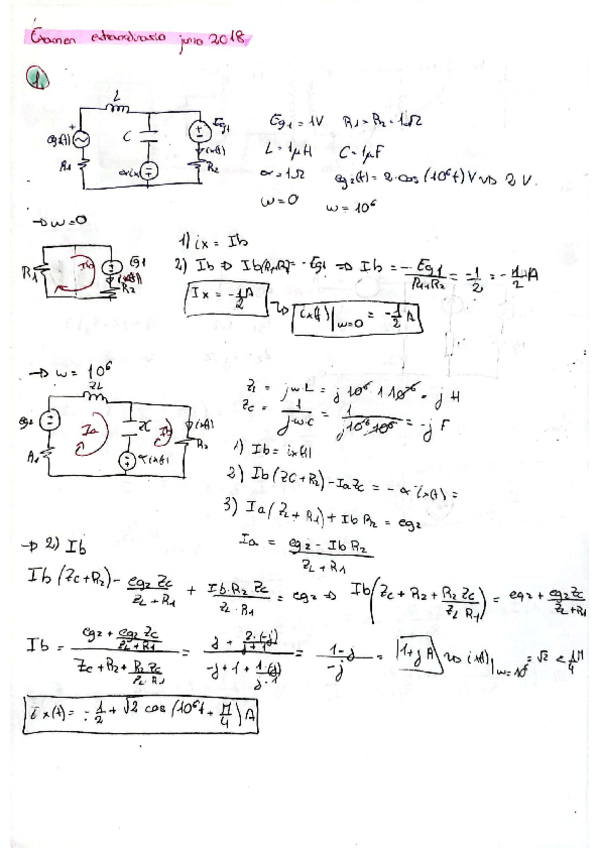 Examen extraordinario junio 2018
1
L
eg2(t)
R1
C
αix
Eg1
ix(t)
R2
Eg1 = 1V R1 = R2 = 1Ω
L = 1μH C = 1μF
α = 1Ω eg2(t) = 2·cos(10⁶t) V → 2 V.
w = 0 w = 10⁶
→ w = 0
R1
Ib
Eg1
ix(t)
R2
1) ix = Ib
2) Ib ⇒ Ib(R1+R2) = -Eg1 ⇒ Ib = -Eg1/(R1+R2) = -1/2 = -1/2 A
Ix = -1/2 A → ix(t)|w=0 = -1/2 A
→ w = 10⁶
ZL
eg2
R1
Ia
ZC
Ib
ix(t)
R2
αix(t)
ZL = jw·L = j 10⁶ · 1 · 10⁻⁶ = j H
ZC = 1/(j·w·C) = 1/(j10⁶·10⁻⁶) = -j F
1) Ib = ix(t)
2) Ib(ZC+R2) - IaZC = -α ix(t) =
3) Ia(ZL+R1) + Ib R2 = eg2
Ia = (eg2 - Ib R2)/(ZL+R1)
→ 2) Ib
Ib(ZC+R2) - (eg2 ZC)/(ZL+R1) + (Ib·R2 ZC)/(ZL·R1) = eg2 ⇒ Ib(ZC + R2 + (R2 ZC)/(ZL R1)) = eg2 + (eg2 ZC)/(ZL+R1)
Ib = (eg2 + (eg2 ZC)/(ZL+R1))/(ZC+R2+(R2 ZC)/(ZL·R1)) = (2 + (2·(-j))/(j+1))/(-j+1+(1·(-j))/(j·1)) = (1-j)/(-j) = 1+j A → i(t)|w=10⁶ = √2 < π/4
ix(t) = -1/2 + √2 cos(10⁶t + π/4) A